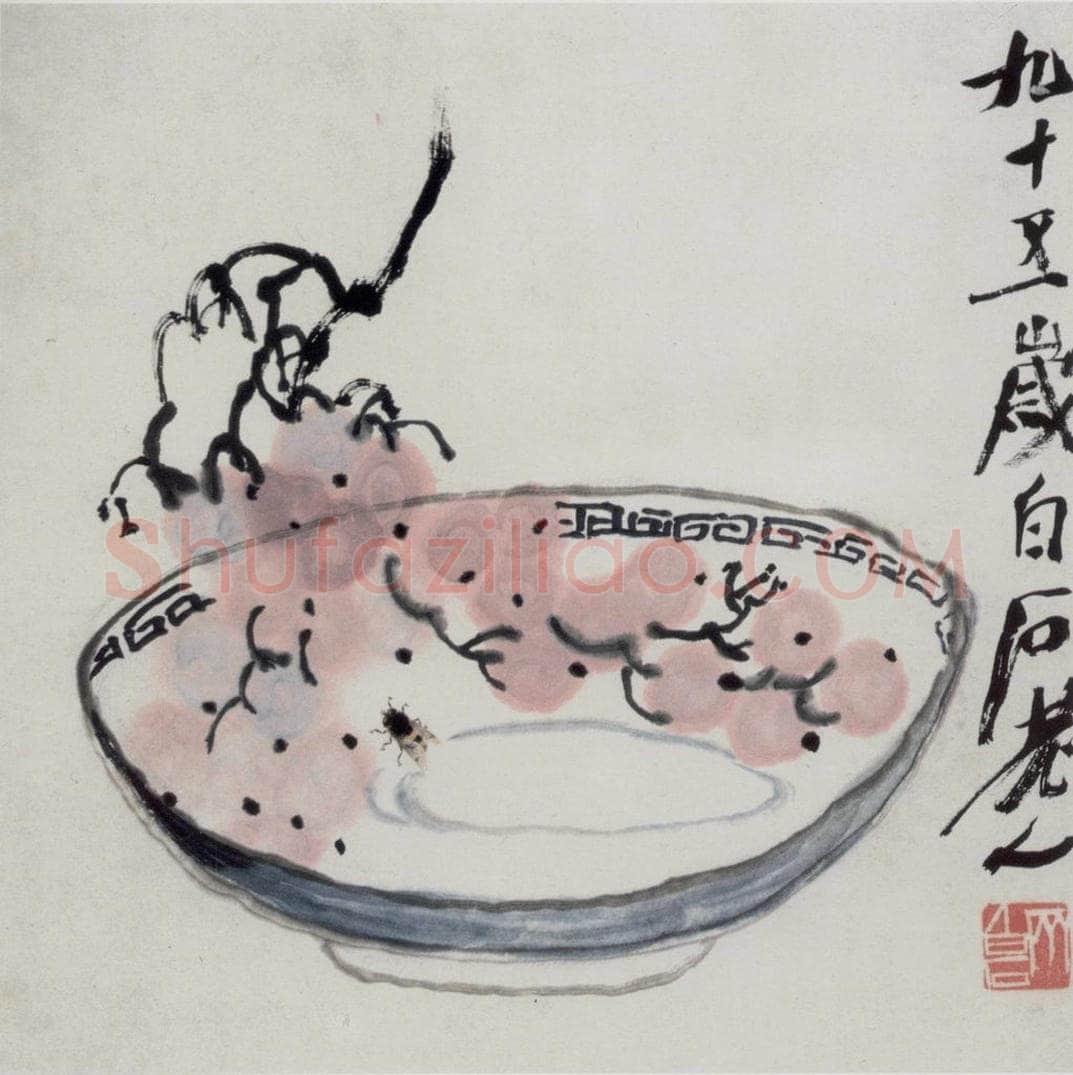 九十五歲白石老人
Shufaziliao.COM